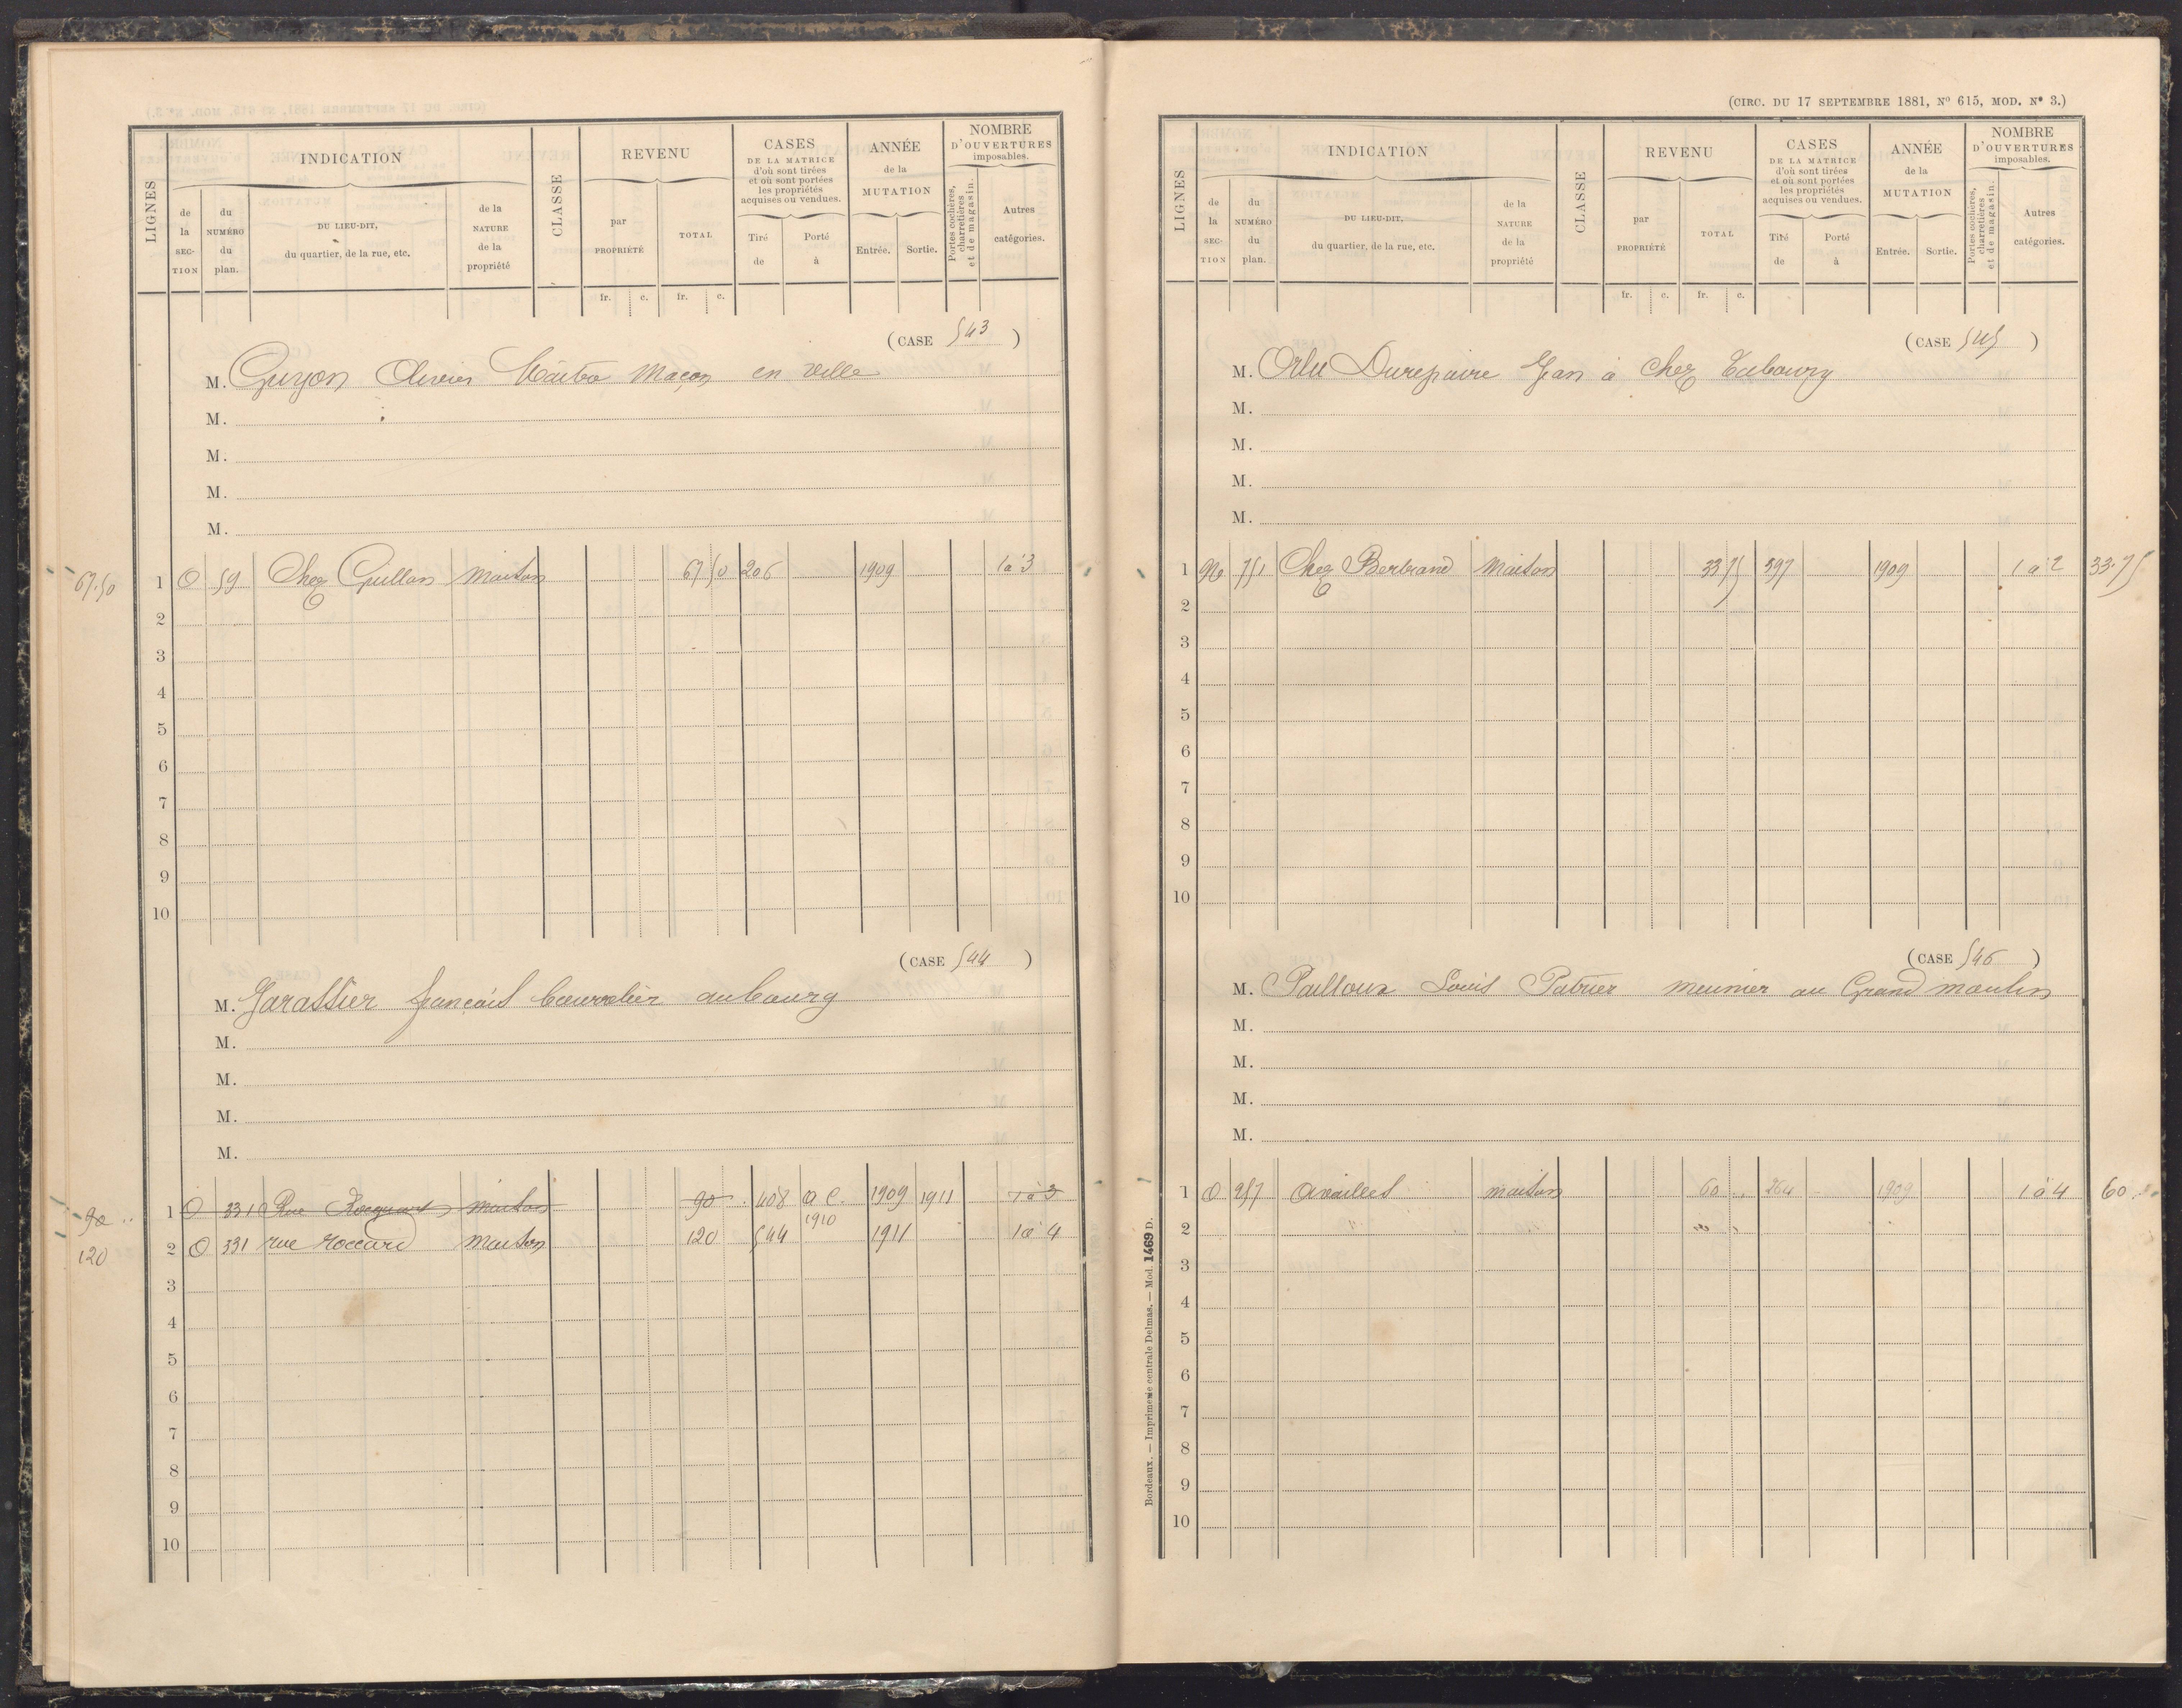 INDICATION
REVENU
CASES
DE LA MATRICE
d'où sont tirées
et où sont portées
les propriétés
acquises ou vendues.
ANNÉE
de la
MUTATION
NOMBRE
D'OUVERTURES
imposables.
LIGNES
de
la
SEC-
TION
du
NUMÉRO
du
plan.
DU LIEU-DIT,
du quartier, de la rue, etc.
de la
NATURE
de la
propriété
CLASSE
par
PROPRIÉTÉ
TOTAL
Tiré
de
Porté
à
Entrée.
Sortie.
Portes cochères,
charretières
et de magasin.
Autres
catégories.
fr. c. fr. c.
(CASE 543)
M. Guyon Olivier Maçon en ville
M.
M.
M.
M.
67.50 1 O 59 Chez maison 67 50 206 1909 1 à 3
2
3
4
5
6
7
8
9
10
(CASE 544)
M. Garassier françois bourrelier au bourg
M.
M.
M.
M.
90 1 O 331 Rue maison 90 408 a C. 1910 1909 1911 1 à 3
120 2 O 331 rue roccard maison 120 544 1911 1 à 4
3
4
5
6
7
8
9
10
(CIRC. DU 17 SEPTEMBRE 1881, Nº 615, MOD. Nº 3.)
INDICATION
REVENU
CASES
DE LA MATRICE
d'où sont tirées
et où sont portées
les propriétés
acquises ou vendues.
ANNÉE
de la
MUTATION
NOMBRE
D'OUVERTURES
imposables.
LIGNES
de
la
SEC-
TION
du
NUMÉRO
du
plan.
DU LIEU-DIT,
du quartier, de la rue, etc.
de la
NATURE
de la
propriété
CLASSE
par
PROPRIÉTÉ
TOTAL
Tiré
de
Porté
à
Entrée.
Sortie.
Portes cochères,
charretières
et de magasin.
Autres
catégories.
fr. c. fr. c.
(CASE 545)
M. Orlu Durepaire Jean à Chez Taboury
M.
M.
M.
M.
1 751 Chez Bertrand Maison 33 75 397 1909 1 à 2 33.75
2
3
4
5
6
7
8
9
10
(CASE 546)
M. Pailloux Louis meunier au Grand moulin
M.
M.
M.
M.
1 O 257 Availles maison 60 264 1909 1 à 4 60
2
3
4
5
6
7
8
9
10
Bordeaux. — Imprimerie centrale Delmas. — Mod. 1469 D.